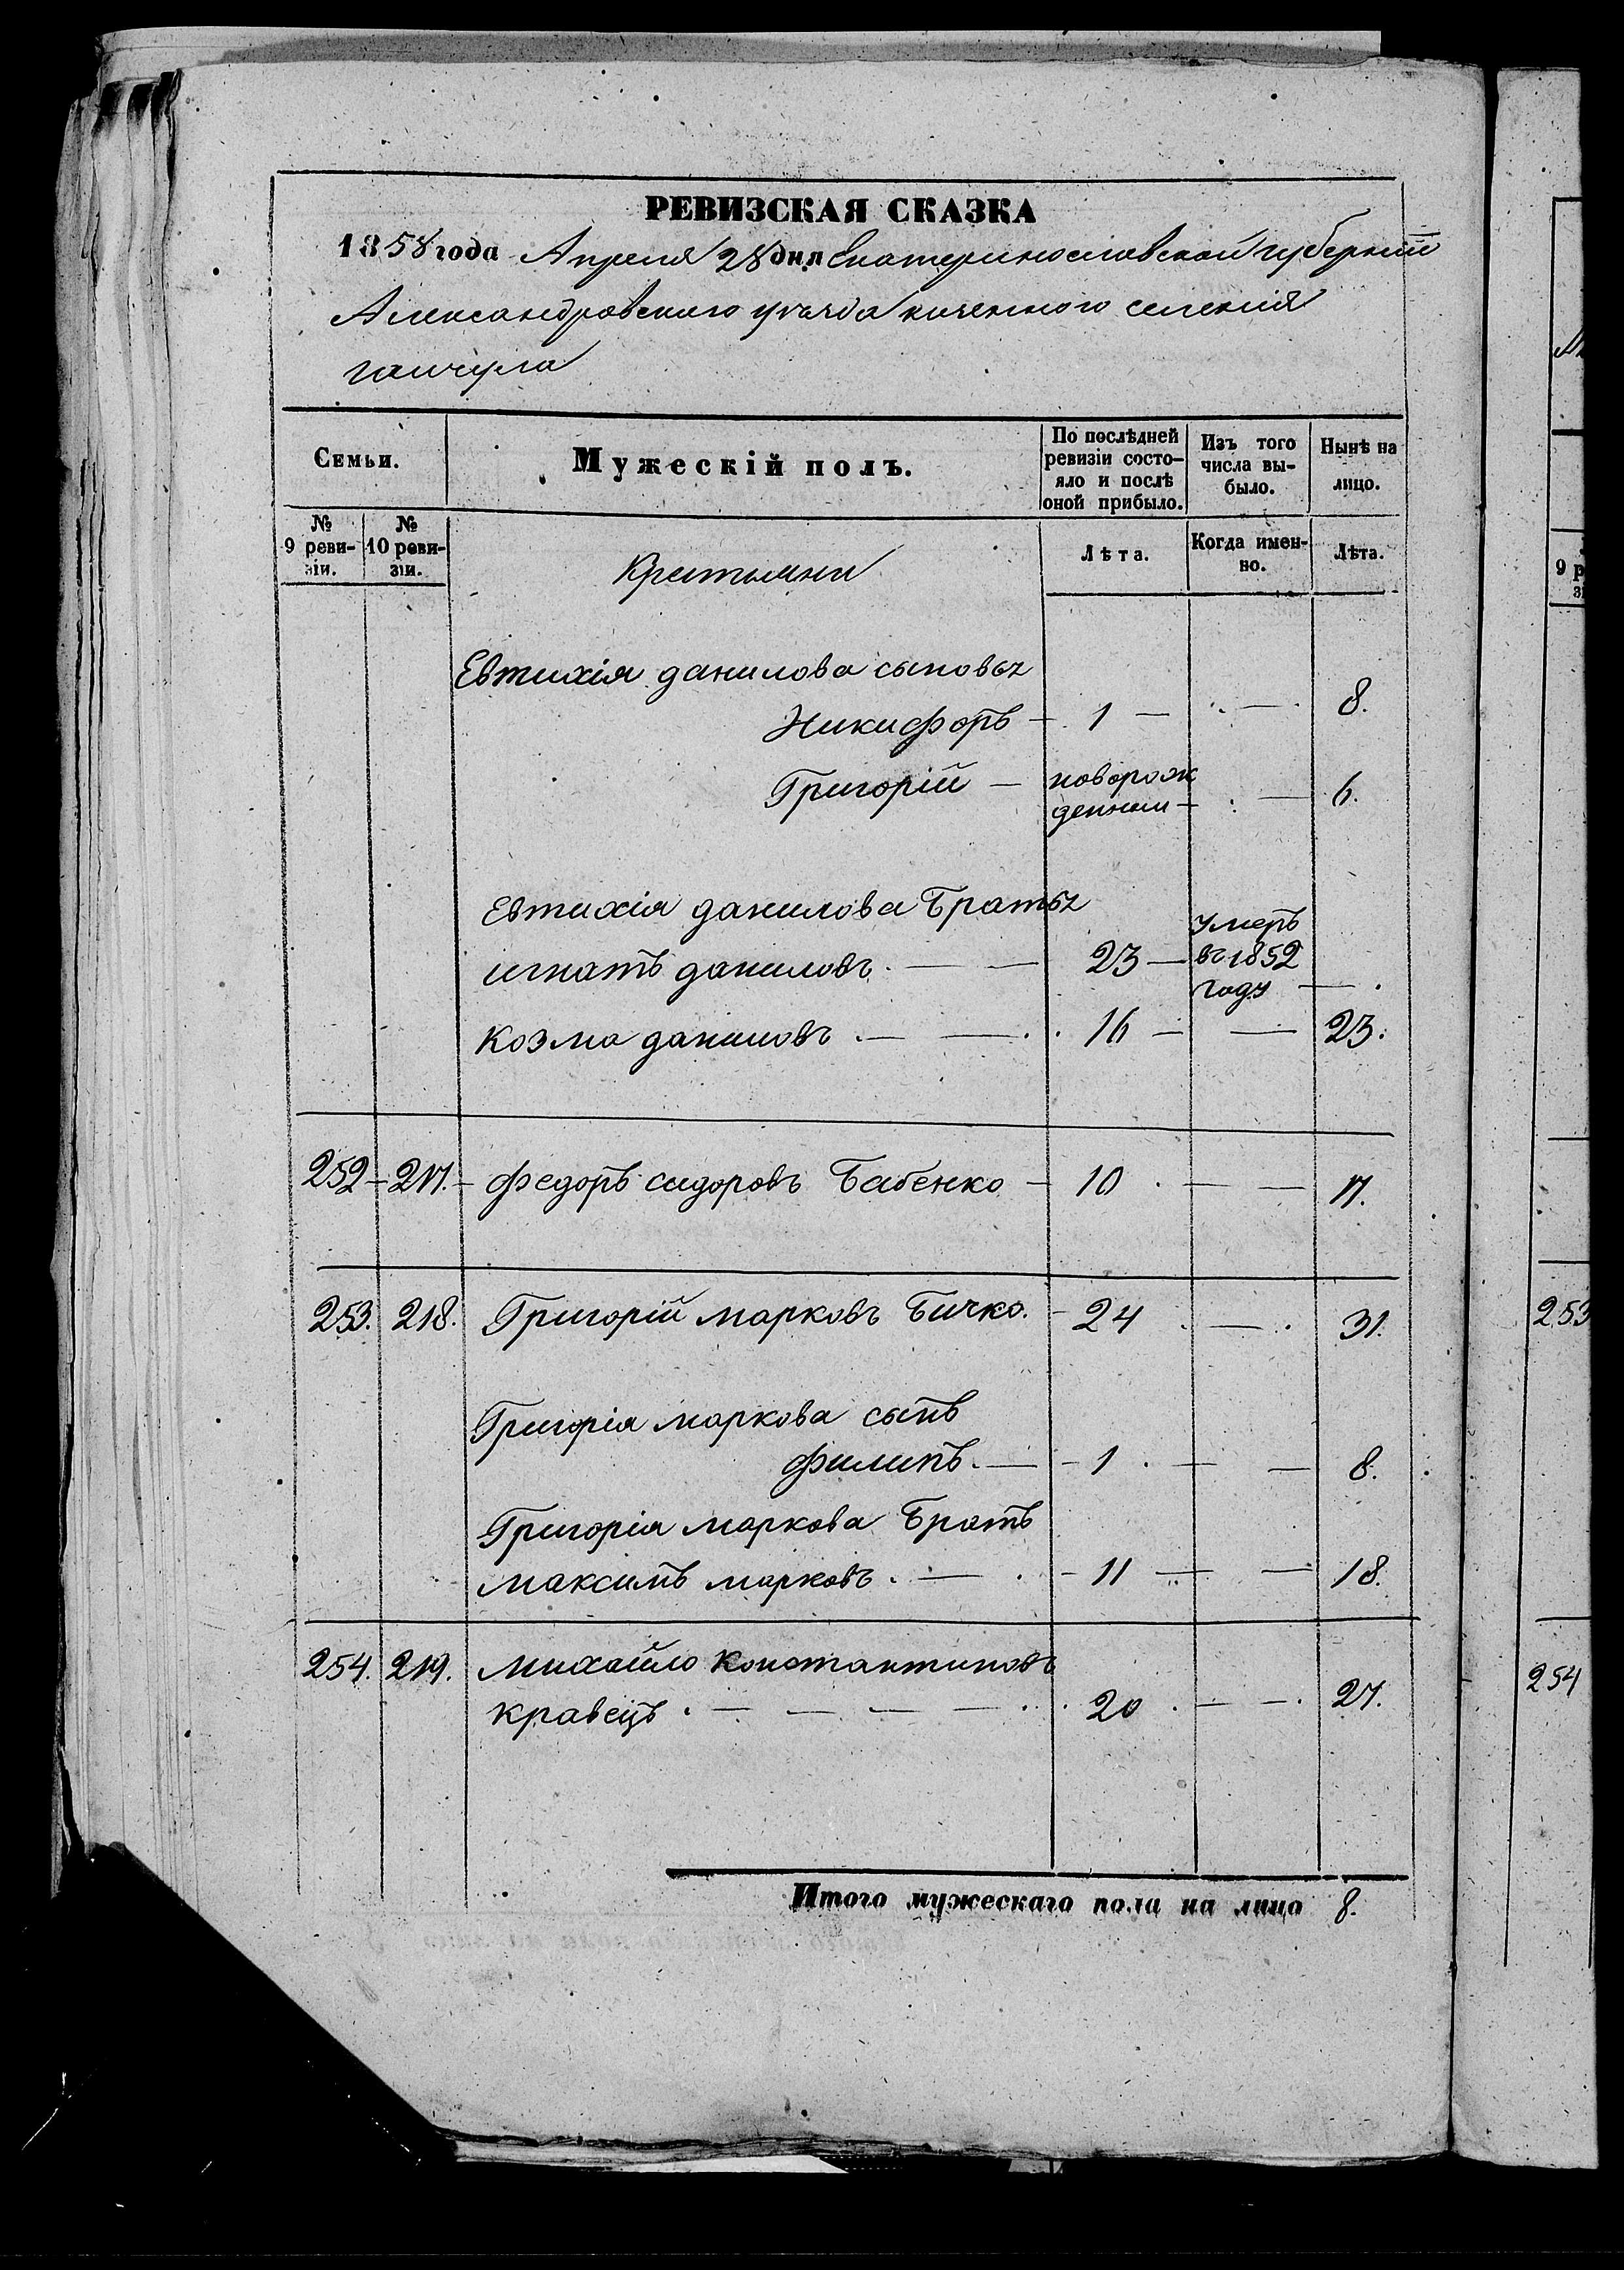 РЕВИЗСКАЯ СКАЗКА
1858 года Апреля 28 дня Екатеринославской губернiи
Александровского уезда казенного селенiя
гайчула
Семьи. Мужескiй полъ. По послѣдней ревизiи состо-яло и послѣ оной прибыло. Изъ того числа вы-было. Нынѣ на лицо.
№ 9 реви-зiи. № 10 реви-зiи. Крестьяни Лѣта. Когда имен-но. Лѣта.
Евтихiя данилова сыновьz
Никифоръ — 1 — — 8.
Григорiй — поворож
денныи — — 6.
Евтихiя данилова Братьz
игнатъ даниловъ. — — 23 — умеръ
въ 1852
году — .
козма даниловъ . — — . 16 — — 23.
252 — 217. — федоръ сидоровъ Бабенко — 10 . — — 17.
253. 218. Григорiй марковъ Бичко. — 24 . — . 31.
Григорiя маркова сынъ
филипъ. — - 1 . — — 8.
Григорiя маркова Братъ
максимъ марковъ. — . - 11 — — 18.
254. 219. михайло константиновъ
кравецъ . — — — — . 20 . — — . 27.
Итого мужескаго пола на лицо 8.
9 р
зi
253
254